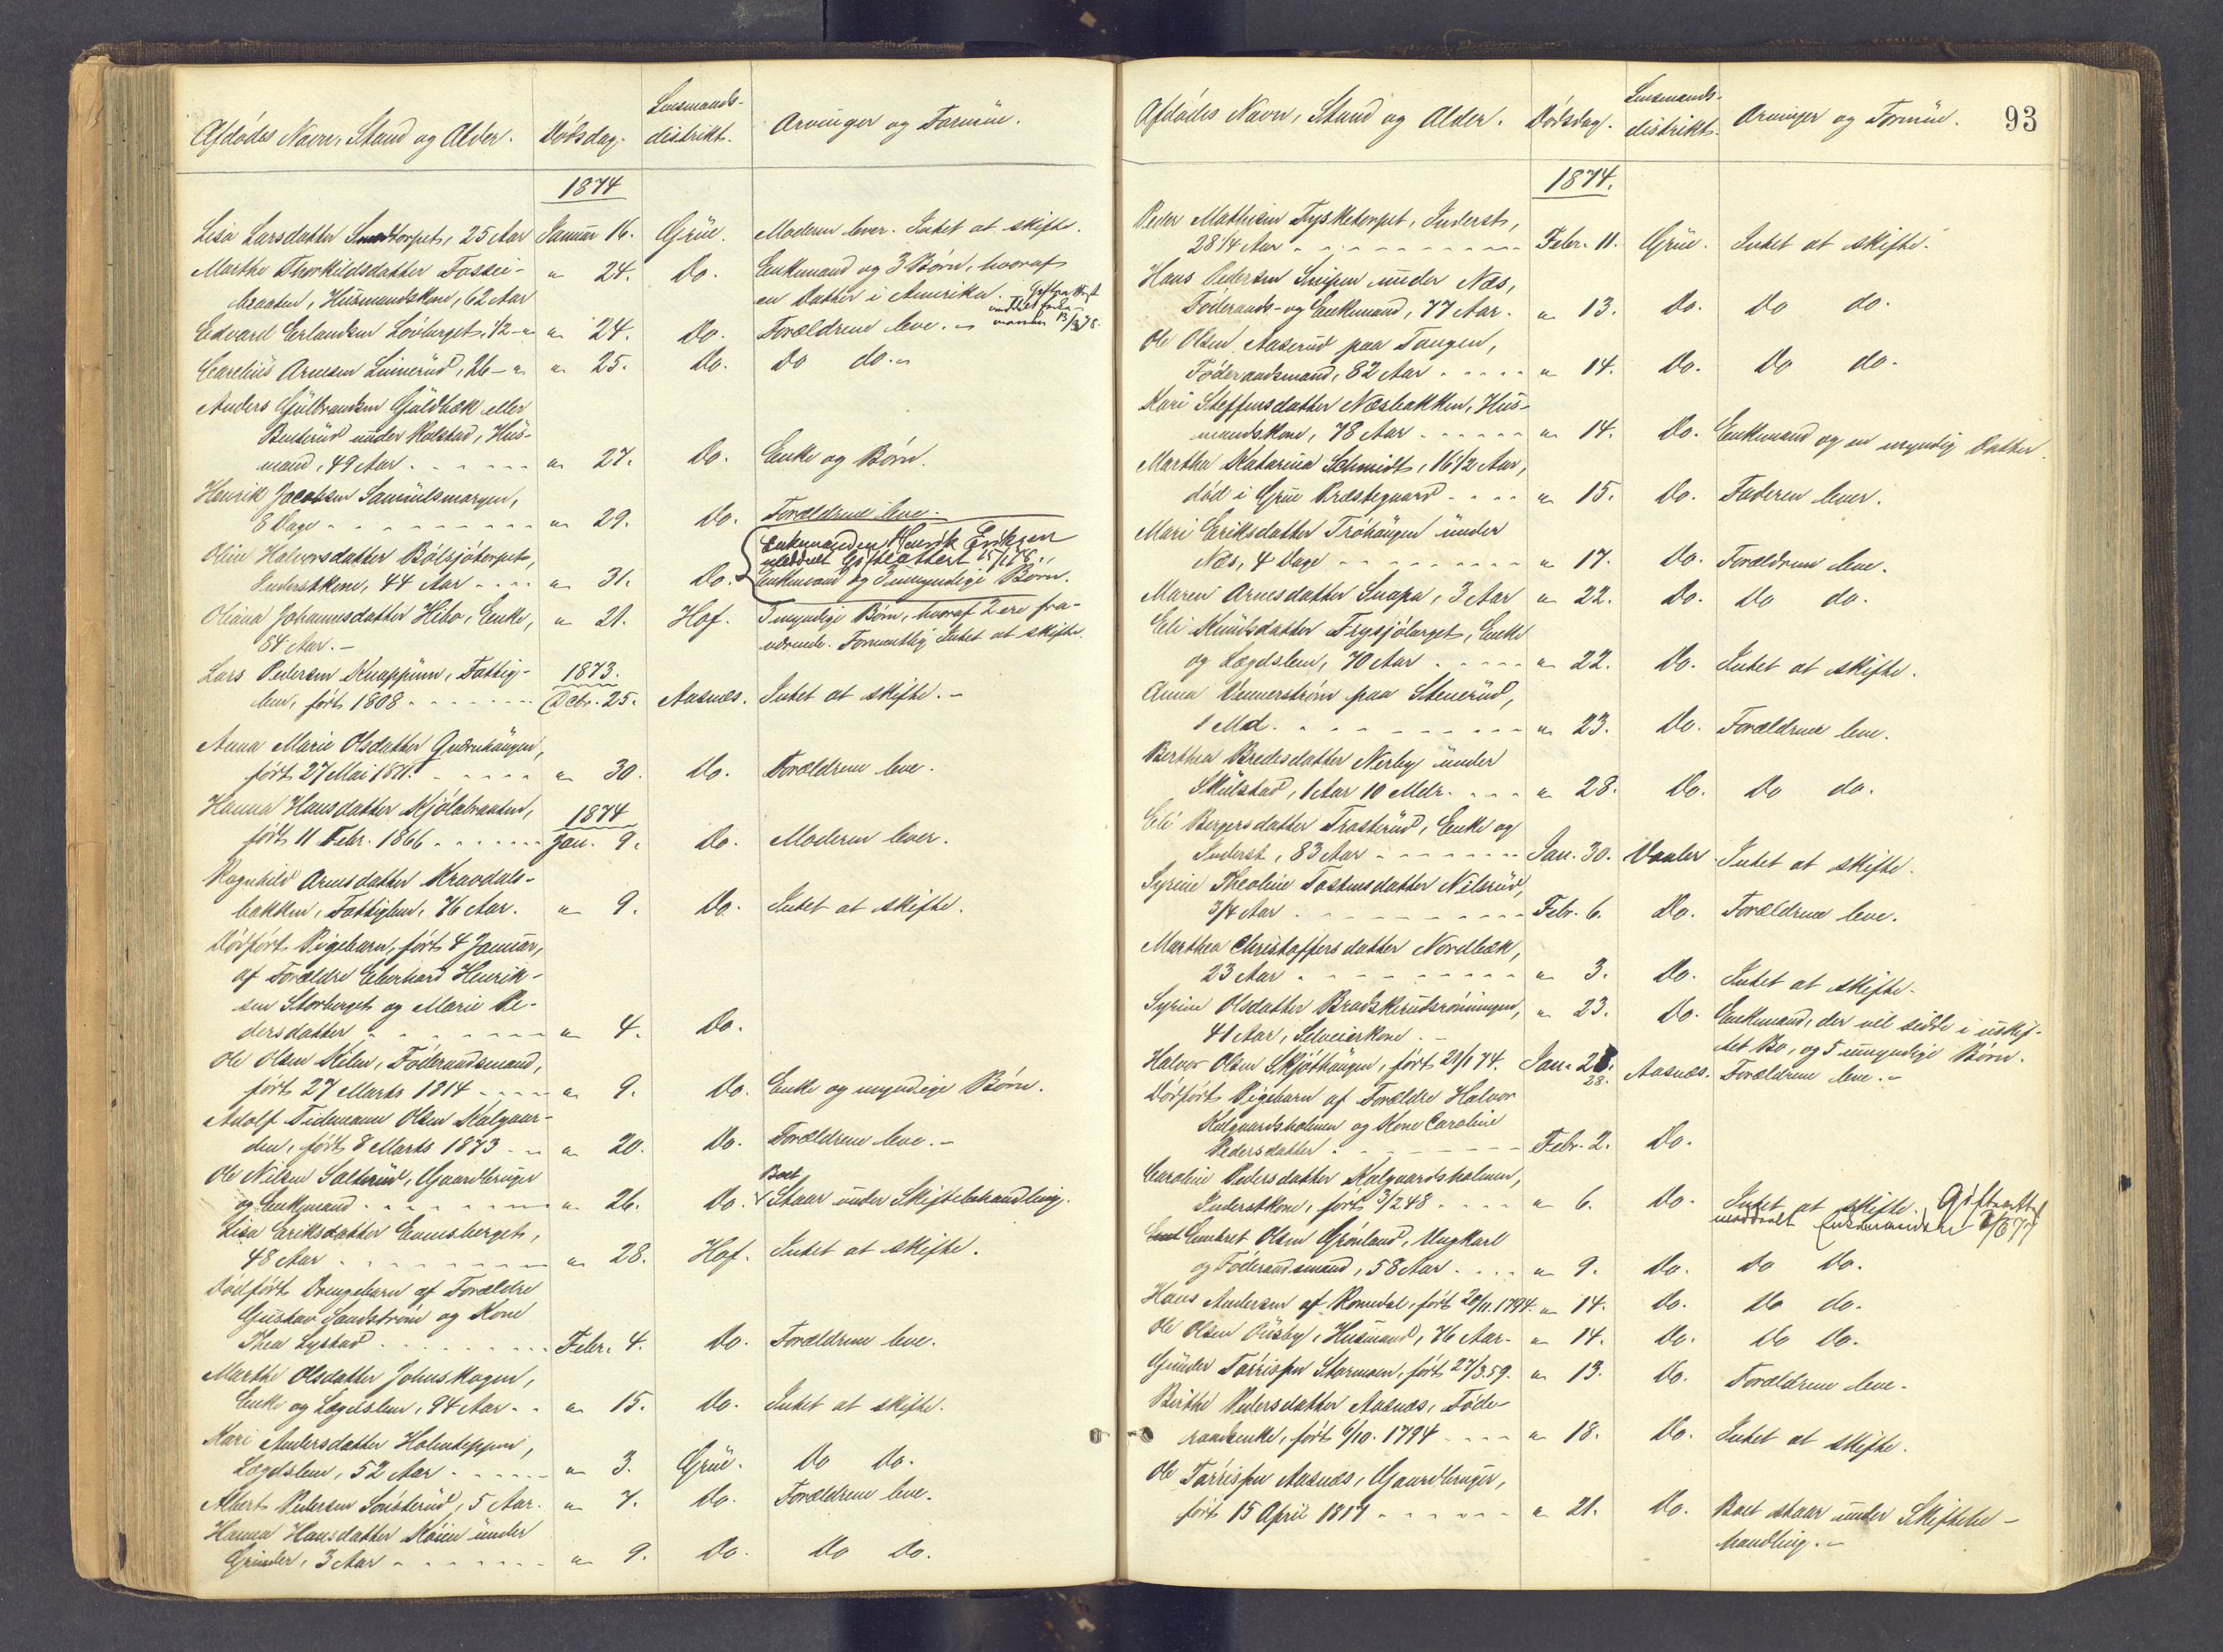 Afdødes Navn, Stand og Alder. Dødsdag. Lensmands-
distrikt. Arvinger og Formue.
1874
Lisa Larsdatter Smedtorpet, 25 Aar Januar 16. Grue. Moderen lever. Intet at skifte.
Marthe Thorkildsdatter Fossei- " 24. Do. Enkemand og 3 Børn, hvoraf
braaten, Husmandskone, 62 Aar en Datter i Amerika.
Edvard Erlandsen Løvberget, 1/2 - " " 24. Do. Forældrene leve. - 13/3 78.
Carelius Arnesen Linnerud, 26 - " " 25. Do. Do do. -
Anders Gulbrandsen Guldbæk eller
Benterud under Kolstad, Hus-
mand, 49 Aar " 27. Do. Enke og Børn.
Henrik Jacobsen Samuelsmoryen,
8 Dage " 29. Do. Forældrene leve.
Enkemanden Henrik Eriksen
meddelt Gifteattest 15/1 78.
Oline Halvorsdatter Bølsjøtorpet,
Inderstkone, 44 Aar " 31. Do. Enkemand og 3 umyndige Børn.
Oliana Johannesdatter Hibo, Enke, " 21. Hof. 3 myndige Børn, hvoraf 2 ere fra-
54 Aar. - værende. Formentlig Intet at skifte.
Lars Pedersen Knappum, Fattig- 1873.
lem, født 1808 Decbr. 25. Aasnæs. Intet at skifte. -
Anna Marie Olsdatter Gudruhaugen,
født 27 Mai 1871. " 30. Do. Forældrene leve.
Hanna Hansdatter Kjølabraaten, 1874
født 11 Febr. 1866 Jan. 9. Do. Moderen lever.
Ragnhild Arnesdatter Kravdals-
bakken, Fattiglem, 76 Aar. " 9. Do. Intet at skifte.
Dødfødt Pigebarn, født 4 Januar,
af Forældre Eberhard Henrik-
sen Storberget og Marie Pe-
dersdatter " 4. Do.
Ole Olsen Kilen, Føderaadsmand,
født 27 Marts 1814 " 9. Do. Enke og myndige Børn.
Adolf Tidemann Olsen Kalgaar-
den, født 8 Marts 1873 " 20. Do. Forældrene leve. -
Ole Nilsen Salterud, Gaardbruger Boet
og Enkemand " 26. Do. Staar under Skiftebehandling.
Lisa Eriksdatter Evensberget,
48 Aar " 28. Hof. Intet at skifte.
Dødfødt Drengebarn af Forældre
Gustav Sandstrøm og Kone
Thea Lystad Febr. 4. Do. Forældrene leve.
Marthe Olsdatter Johnskogen,
Enke og Lægdslem, 94 Aar " 15. Do. Intet at skifte.
Kari Andersdatter Holmteppen,
Lægdslem, 52 Aar " 3. Grue. Do Do.
Albert Pedersen Sønsterud, 5 Aar. " 7. Do. Forældrene leve.
Hanna Hansdatter Køien under
Grinder, 3 Aar " 9. Do. Do Do.
Afdødes Navn, Stand og Alder. Dødsdag. Lensmands-
distrikt. Arvinger og Formue. 93
1874.
Peder Mathisen Tysketorpet, Inderst,
28 1/4 Aar Febr. 11. Grue. Intet at skifte.
Hans Pedersen Sneipen under Næs,
Føderaads- og Enkemand, 77 Aar. " 13. Do. Do do.
Ole Olsen Aaserud paa Tangen,
Føderaadsmand, 82 Aar " 14. Do. Do do.
Kari Steffensdatter Næsbakken, Hus-
mandskone, 78 Aar " 14. Do. Enkemand og en myndig Datter.
Martha Katarina Schmidt, 16 1/2 Aar,
død i Grue Præstegaard " 15. Do. Faderen lever.
Mari Eriksdatter Trøhaugen under
Næs, 4 Dage " 17. Do. Forældrene leve.
Maren Arnesdatter Snapa, 3 Aar " 22. Do. Do do.
Eli Knudsdatter Frysjøberget, Enke
og Lægdslem, 70 Aar " 22. Do. Intet at skifte.
Anna Vennerstrøm paa Stenerud,
1 Md. " 23. Do. Forældrene leve.
Berthea Bredesdatter Nerby under
Skulstad, 1 Aar 10 Mdr. " 28. Do. Do do.
Eli Bergersdatter Trosterud, Enke og
Inderst, 83 Aar Jan. 30. Vaaler Intet at skifte.
Syrine Theoline Tostensdatter Nilsrud,
3/4 Aar Febr. 6. Do. Forældrene leve.
Marthea Christoffersdatter Nordbæk,
23 Aar " 3. Do. Intet at skifte.
Syrine Olsdatter Bradskerudsrønningen, " 23. Do. Enkemand, der vil sidde i uskif-
41 Aar, Selveierkone. - tet Bo, og 5 umyndige Børn.
Halvor Olsen Skjøthaugen, født 21/1 74. Jan. 28. Aasnæs. Forældrene leve. -
28.
Dødfødt Pigebarn af Forældre Halvor
Kalgaardsholmen og Kone Caroline
Pedersdatter Febr. 2. Do.
Caroline Pedersdatter Kalgaardsholmen,
Inderstkone, født 3/2 48 " 6. Do. Intet at skifte. Gifteattest
meddelt Enkemanden
Embret Olsen Grønland, Ungkarl
og Føderaadsmand, 58 Aar " 9. Do. Do Do.
Hans Andersen af Romedal, født 20/11 1794. " 14. Do. Do do.
Ole Olsen Øusby, Husmand, 76 Aar " 14. Do. Do Do.
Gunder Tarrisen Stormoen, født 27/3 59. " 13. Do. Forældrene leve.
Birthe Pedersdatter Aasnæs, Føde-
raadsenke, født 6/10. 1794 " 18. Do. Intet at skifte.
Ole Tarrisen Aasnæs, Gaardbruger,
født 15 April 1817 " 21. Do. Boet staar under Skiftebe-
handling. -